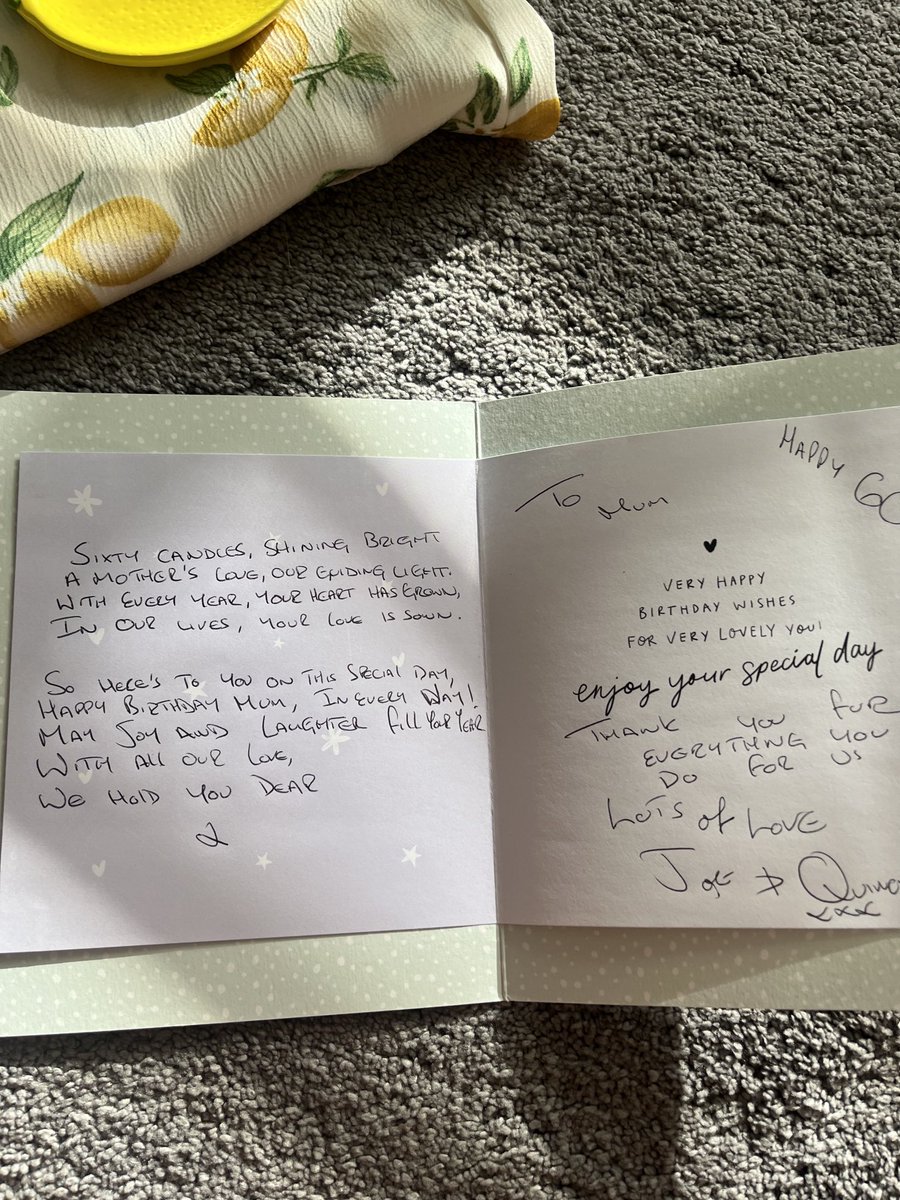 SIXTY CANDLES, SHINING BRIGHT
A MOTHER'S LOVE, OUR GUIDING LIGHT.
WITH EVERY YEAR, YOUR HEART HAS GROWN,
IN OUR LIVES, YOUR LOVE IS SOWN.
SO HERE'S TO YOU ON THIS SPECIAL DAY,
HAPPY BIRTHDAY MUM, IN EVERY WAY!
MAY JOY AND LAUGHTER FILL YOUR YEAR
WITH ALL OUR LOVE,
WE HOLD YOU DEAR
HAPPY
60
To Mum
VERY HAPPY
BIRTHDAY WISHES
FOR VERY LOVELY YOU!
enjoy your special day
THANK YOU FOR
EVERYTHING YOU
DO FOR US
LOTS of LOVE
Joe &
xxx